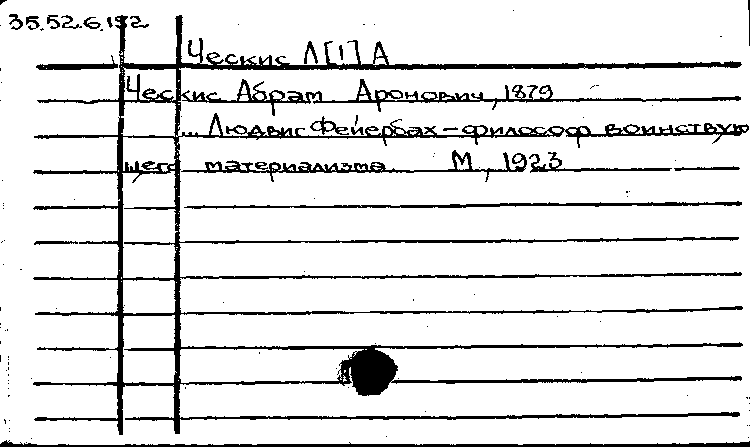 35.52.6.192
Ческис Л[!] А
Ческис Абрам Аронович, 1879
... Людвиг Фейербах – философ воинствую
щего материализма. М, 1923